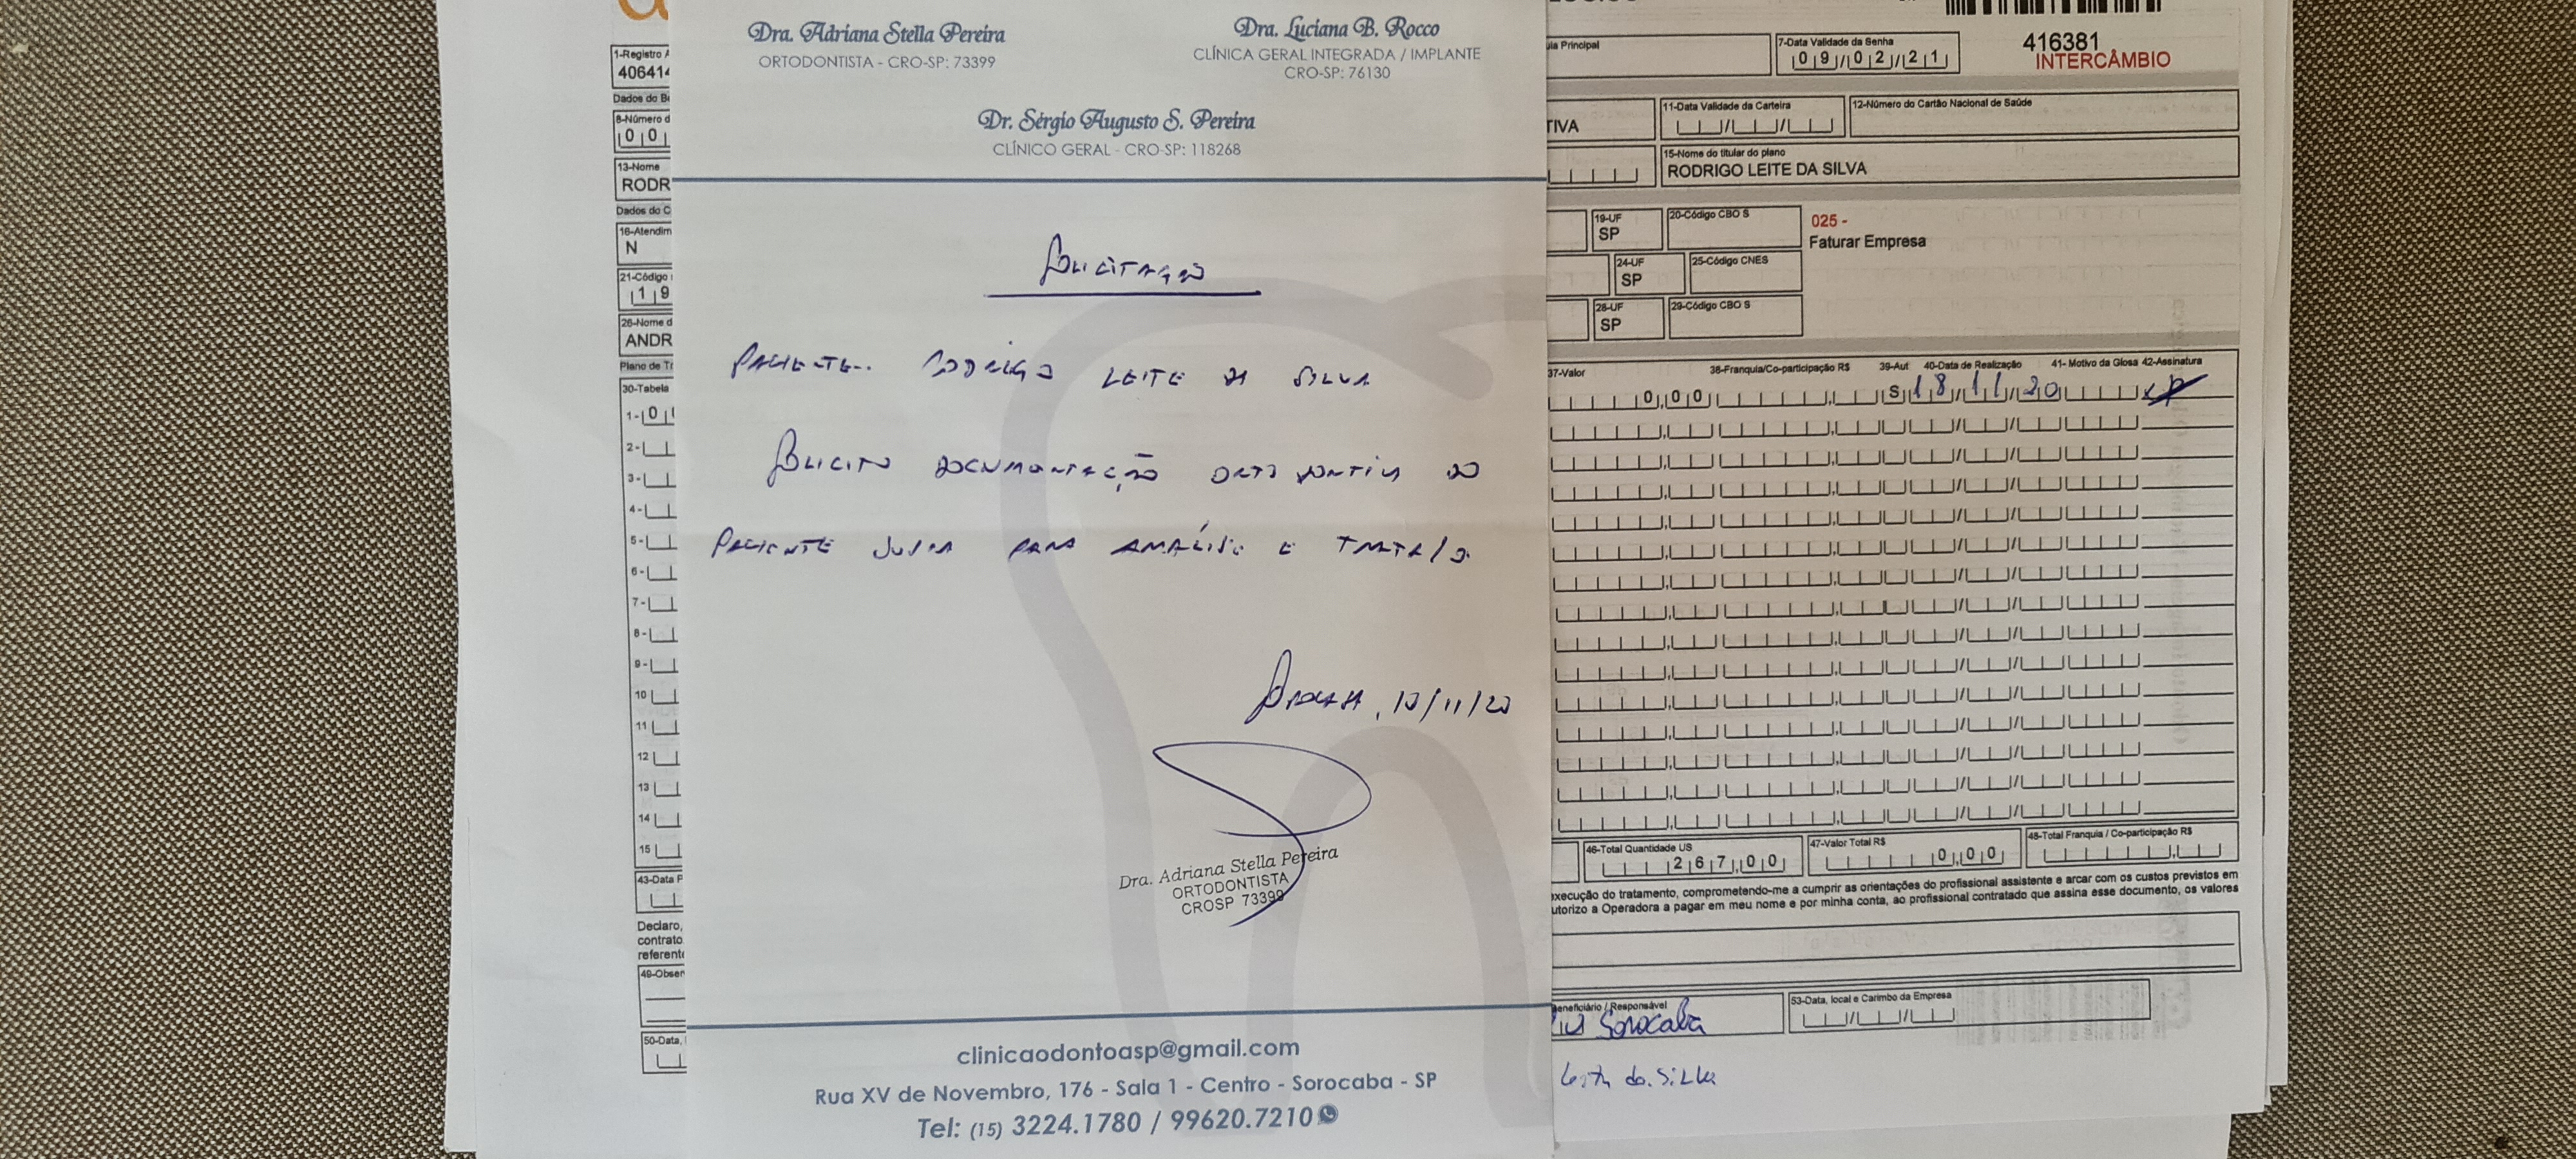 Dra. Adriana Stella Pereira
ORTODONTISTA - CRO-SP: 73399
Dra. Luciana B. Rocco
CLÍNICA GERAL INTEGRADA / IMPLANTE
CRO-SP: 76130
Dr. Sérgio Augusto S. Pereira
CLÍNICO GERAL - CRO-SP: 118268
SOLICITAÇÃO
PACIENTE: RODRIGO LEITE DA SILVA
SOLICITO DOCUMENTAÇÃO ORTODONTICA DO
PACIENTE PARA ANÁLISE E
Dra. Adriana Stella Pereira
ORTODONTISTA
CROSP 73399
clinicaodontoasp@gmail.com
Rua XV de Novembro, 176 - Sala 1 - Centro - Sorocaba - SP
Tel: (15) 3224.1780 / 99620.7210
1-Registro A
40641
Dados do Be
8-Número d
0 0
13-Nome
RODR
Dados do C
16-Atendim
N
21-Código
1 9
26-Nome d
ANDR
Plano de Tr
30-Tabela
1- 0
2-
3-
4-
5-
6-
7-
8-
9-
10
11
12
13
14
15
43-Data P
Declaro,
contrato
referent
49-Obser
50-Data,
Principal
7-Data Validade da Senha
09/02/21
416381
INTERCÂMBIO
TIVA
11-Data Validade da Carteira
12-Número do Cartão Nacional de Saúde
15-Nome do titular do plano
RODRIGO LEITE DA SILVA
19-UF
SP
20-Código CBO S
025 -
Faturar Empresa
24-UF
SP
25-Código CNES
28-UF
SP
29-Código CBO S
37-Valor 38-Franquia/Co-participação R$ 39-Aut 40-Data de Realização 41- Motivo da Glosa 42-Assinatura
0,00 S 18/11/20
46-Total Quantidade US
267,00
47-Valor Total R$
0,00
48-Total Franquia / Co-participação R$
execução do tratamento, comprometendo-me a cumprir as orientações do profissional assistente e arcar com os custos previstos em
utorizo a Operadora a pagar em meu nome e por minha conta, ao profissional contratado que assina esse documento, os valores
Beneficiário / Responsável
Sorocaba
53-Data, local e Carimbo da Empresa
da Silva